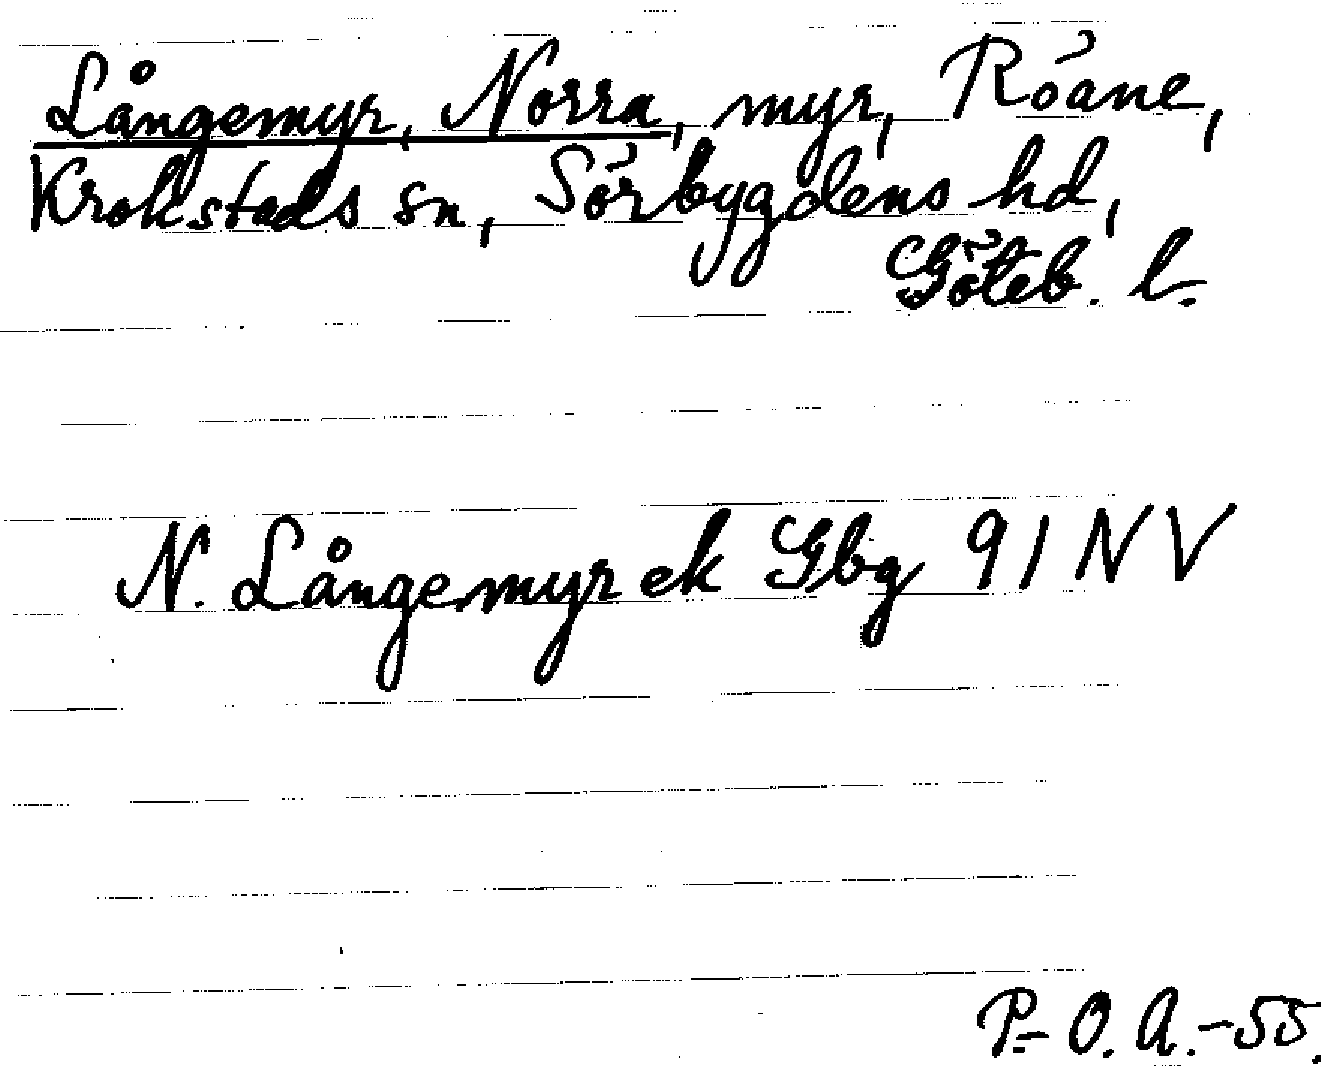 Långemyr, Norra, myr, Röane,
Krokstads sn, Sörbygdens hd,
Göteb. l.
N. Långemyr ek Gbg 91 NV
P-O.A.-55.